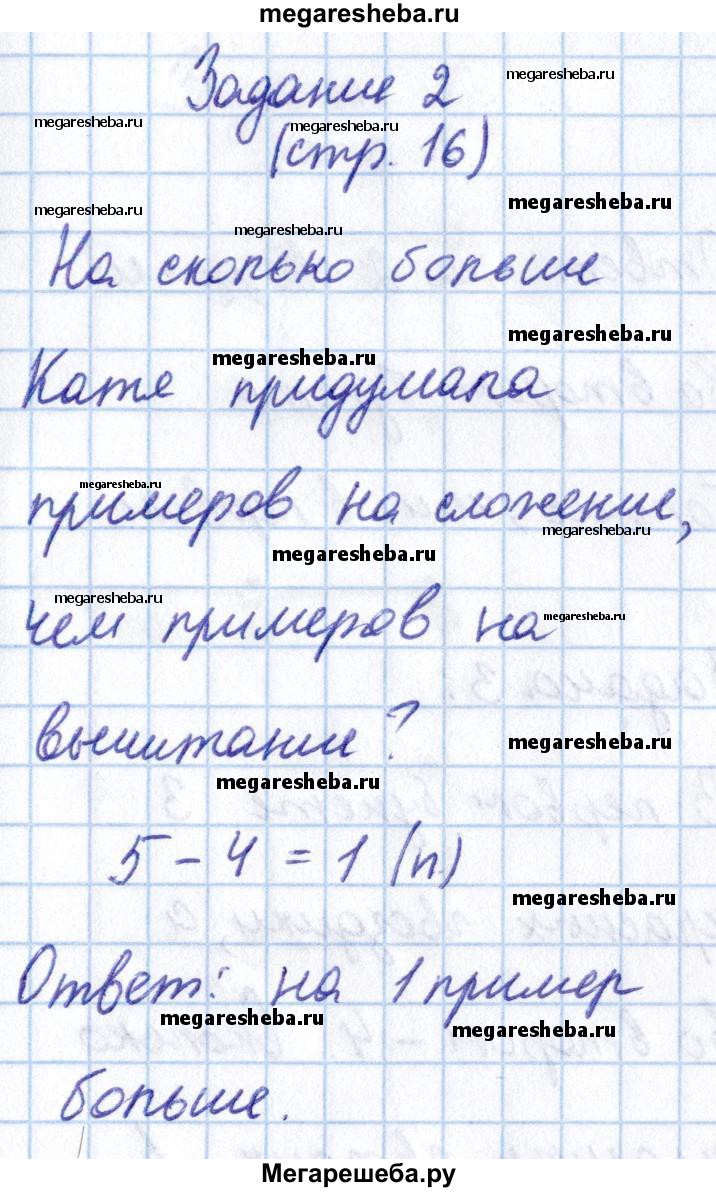 megaresheba.ru
Задание 2
megaresheba.ru
megaresheba.ru
megaresheba.ru
(стр. 16)
megaresheba.ru
megaresheba.ru
megaresheba.ru
На сколько больше
megaresheba.ru
megaresheba.ru
Катя придумала
megaresheba.ru
примеров на сложение,
megaresheba.ru
megaresheba.ru
megaresheba.ru
чем примеров на
megaresheba.ru
вычитание?
megaresheba.ru
megaresheba.ru
5 - 4 = 1 (п)
megaresheba.ru
Ответ: на 1 пример
megaresheba.ru
megaresheba.ru
больше.
Мегарешеба.ру